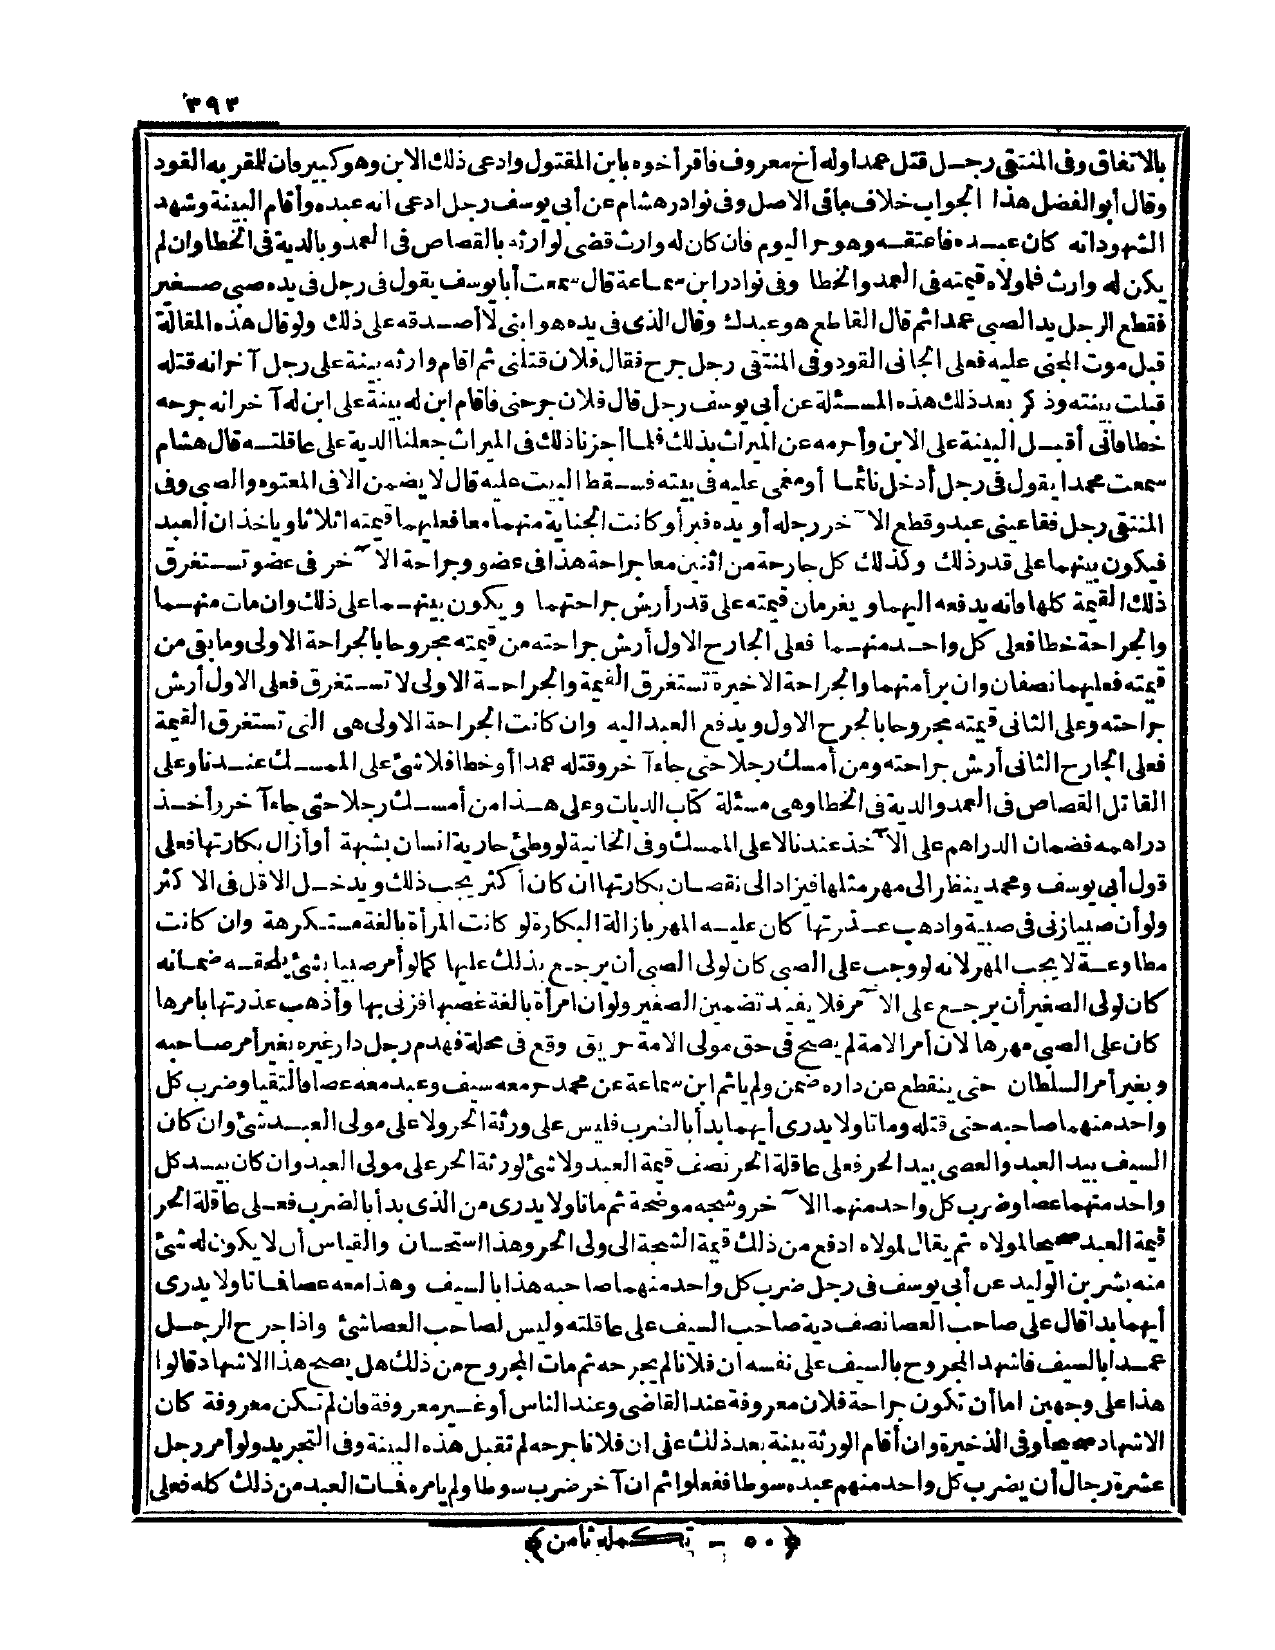 ٣٩٣
بالاتفاق وفى المنتقى رجل قتل عمدا وله أخ معروف فاقر أخوه بابن المقتول وادعى ذلك الابن وهو كبير وان للمقر به القود
وقال أبو الفضل هذا الجواب خلاف ما فى الاصل وفى نوادر هشام عن أبى يوسف رجل ادعى انه عبده وأقام البينة وشهد
الشهود انه كان عبده فاعتقه وهو حر اليوم فان كان له وارث قضى لوارثه بالقصاص فى العمد وبالدية فى الخطا وان لم
يكن له وارث فلمولاه قيمته فى العمد والخطا وفى نوادر ابن سماعة قال سمعت أبا يوسف يقول فى رجل فى يده صبى صغير
فقطع الرجل يد الصبى عمدا ثم قال القاطع هو عبدك وقال الذى فى يده هو ابنى لا أصدقه على ذلك ولو قال هذه المقالة
قبل موت المجنى عليه فعلى الجانى القود وفى المنتقى رجل جرح فقال فلان قتلنى ثم اقام وارثه بينة على رجل آخر انه قتله
قبلت بينته وذكر بعد ذلك هذه المسئلة عن أبى يوسف رجل قال فلان جرحنى فاقام ابن له بينة على ابن له آخر انه جرحه
خطا فانى أقبل البينة على الابن وأحرمه عن الميراث بذلك فلما أجزنا ذلك فى الميراث جعلنا الدية على عاقلته قال هشام
سمعت محمدا يقول فى رجل أدخل نائما أو مغمى عليه فى بيته فسقط البيت عليه قال لا يضمن الا فى المعتوه والصبى وفى
المنتقى رجل فقا عينى عبد وقطع الآخر رجله أو يده فبرأ وكانت الجناية منهما معا فعليهما قيمته اثلاثا وياخذان العبد
فيكون بينهما على قدر ذلك وكذلك كل جارحة من اثنين معا جراحة هذا فى عضو وجراحة الآخر فى عضو تستغرق
ذلك القيمة كلها فانه يدفعه اليهما ويغرمان قيمته على قدر أرش جراحتهما ويكون بينهما على ذلك وان مات منهما
والجراحة خطا فعلى كل واحد منهما فعلى الجارح الاول أرش جراحته من قيمته مجروحا بالجراحة الاولى وما بقى من
قيمته فعليهما نصفان وان برأ منهما والجراحة الاخيرة تستغرق القيمة والجراحة الاولى لا تستغرق فعلى الاول أرش
جراحته وعلى الثانى قيمته مجروحا بالجرح الاول ويدفع العبد اليه وان كانت الجراحة الاولى هى التى تستغرق القيمة
فعلى الجارح الثانى أرش جراحته ومن أمسك رجلا حتى جاء آخر وقتله عمدا أو خطا فلا شئ على الممسك عندنا وعلى
القاتل القصاص فى العمد والدية فى الخطا وهى مسئلة كتاب الديات وعلى هذا من أمسك رجلا حتى جاء آخر وأخذ
دراهمه فضمان الدراهم على الآخذ عندنا لا على الممسك وفى الخانية لو وطئ جارية انسان بشبهة أو أزال بكارتها فعلى
قول أبى يوسف ومحمد ينظر الى مهر مثلها فيزاد الى نقصان بكارتها ان كان أكثر يجب ذلك ويدخل الاقل فى الاكثر
ولو أن صبيا زنى فى صبية واذهب عذرتها كان عليه المهر بازالة البكارة لو كانت المرأة بالغة مستكرهة وان كانت
مطاوعة لا يجب المهر لانه لو وجب على الصبى كان لولى الصبى أن يرجع بذلك عليها كما لو أمر صبيا بشئ يلحقه ضمانه
كان لولى الصغير أن يرجع على الآمر فلا يفيد تضمين الصغير ولو ان امرأة بالغة غصبها فزنى بها وأذهب عذرتها بامرها
كان على الصبى مهرها لان أمر الامة لم يصح فى حق مولى الامة حريق وقع فى محلة فهدم رجل دار غيره بغير أمر صاحبه
وبغير أمر السلطان حتى ينقطع عن داره ضمن ولم ياثم ابن سماعة عن محمد حر معه سيف وعبد معه عصا فالتقيا وضرب كل
واحد منهما صاحبه حتى قتله وماتا ولا يدرى أيهما بدأ بالضرب فليس على ورثة الحر ولا على مولى العبد شئ وان كان
السيف بيد العبد والعصى بيد الحر فعلى عاقلة الحر نصف قيمة العبد ولا شئ لورثة الحر على مولى العبد وان كان بيد كل
واحد منهما عصا وضرب كل واحد منهما الآخر وشجه موضحة ثم ماتا ولا يدرى من الذى بدأ بالضرب فعلى عاقلة الحر
قيمة العبد صحيحا لمولاه ثم يقال لمولاه ادفع من ذلك قيمة الشجة الى ولى الحر وهذا استحسان والقياس أن لا يكون له شئ
منه بشر بن الوليد عن أبى يوسف فى رجل ضرب كل واحد منهما صاحبه هذا بالسيف وهذا معه عصا فماتا ولا يدرى
أيهما بدا قال على صاحب العصا نصف دية صاحب السيف على عاقلته وليس لصاحب العصا شئ واذا جرح الرجل
عمدا بالسيف فاشهد المجروح بالسيف على نفسه ان فلانا لم يجرحه ثم مات المجروح من ذلك هل يصح هذا الاشهاد قالوا
هذا على وجهين اما أن تكون جراحة فلان معروفة عند القاضى وعند الناس أو غير معروفة فان لم تكن معروفة كان
الاشهاد صحيحا وفى الذخيرة وان أقام الورثة بينة بعد ذلك على ان فلانا جرحه لم تقبل هذه البينة وفى التجريد ولو أمر رجل
عشرة رجال أن يضرب كل واحد منهم عبده سوطا ففعلوا ثم ان آخر ضرب سوطا ولم يامره فمات العبد من ذلك كله فعلى
﴿ ٥٠ - تكمله ثامن ﴾